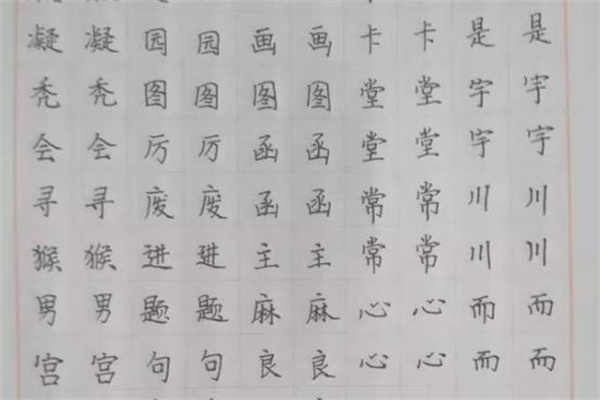 凝凝园园画画卡卡是是
秃秃图图图图堂堂宇宇
会会厉厉函函堂堂宇宇
寻寻废废函函常常川川
猴猴进进主主常常川川
男男题题麻麻心心而而
宫宫句句良良心心而而